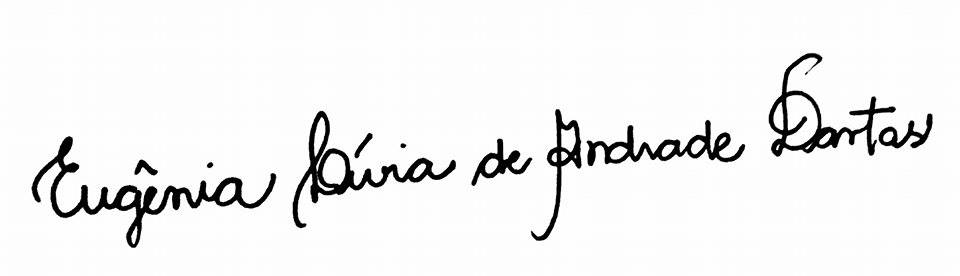 Eugênia Lívia de Andrade Dantas